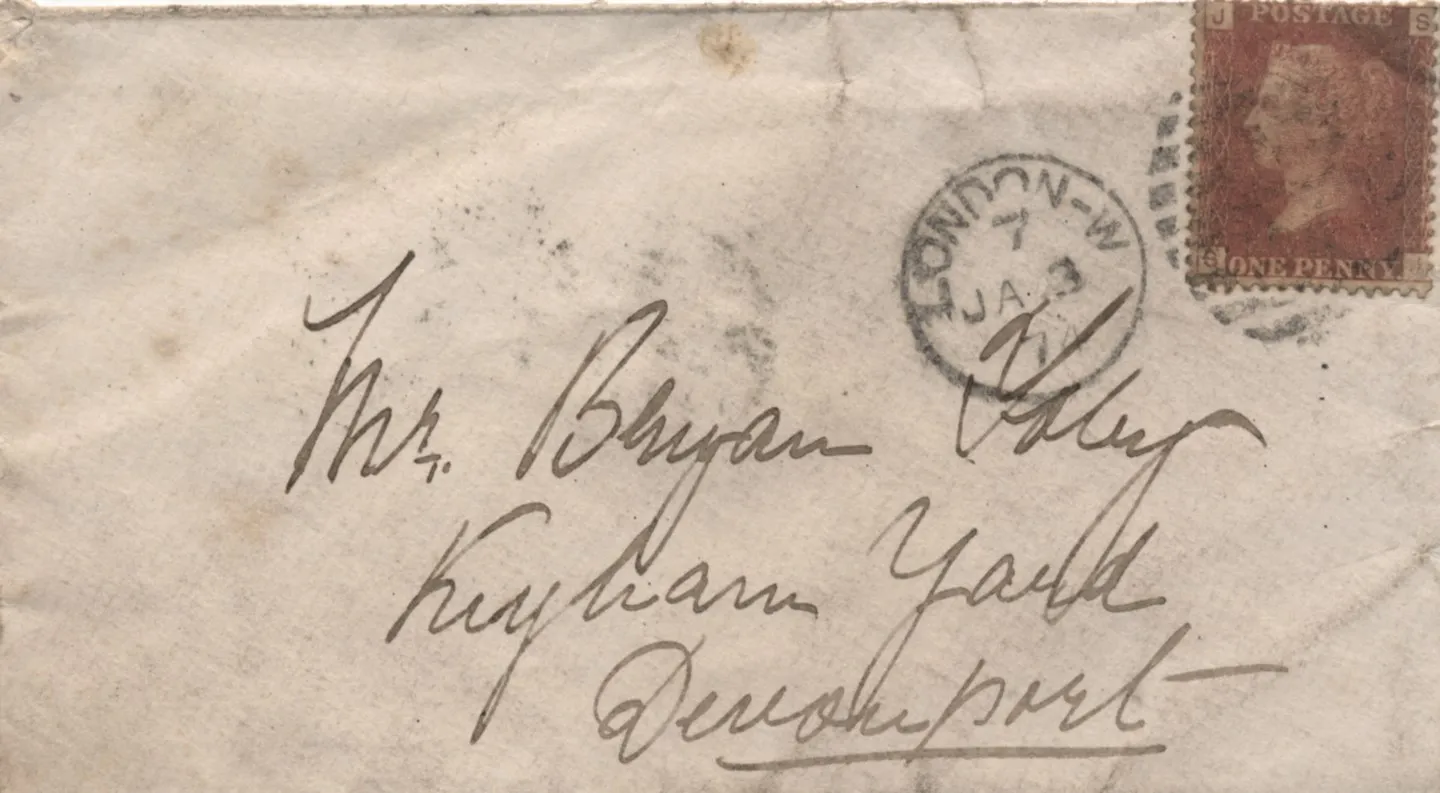 J POSTAGE S
LONDON-W
7
JA 3
ONE PENNY
Mr. Bryan
Keyham Yard
Devonport